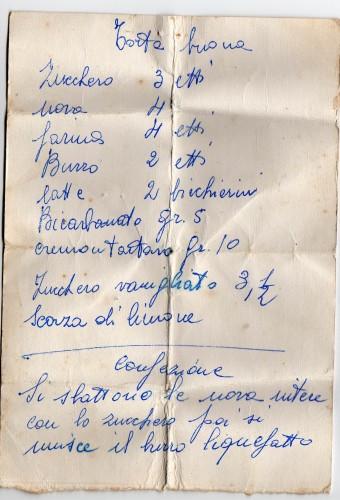 Torta buona
Zucchero 3 etti
uova 4
farina 4 etti
Burro 2 etti
latte 2 bicchierini
Bicarbonato gr. 5
cremontartaro gr. 10
Zucchero vanigliato 3,½
Scorza di limone
confezione
Si sbattono le uova intere
con lo zucchero poi si
unisce il burro liquefatto